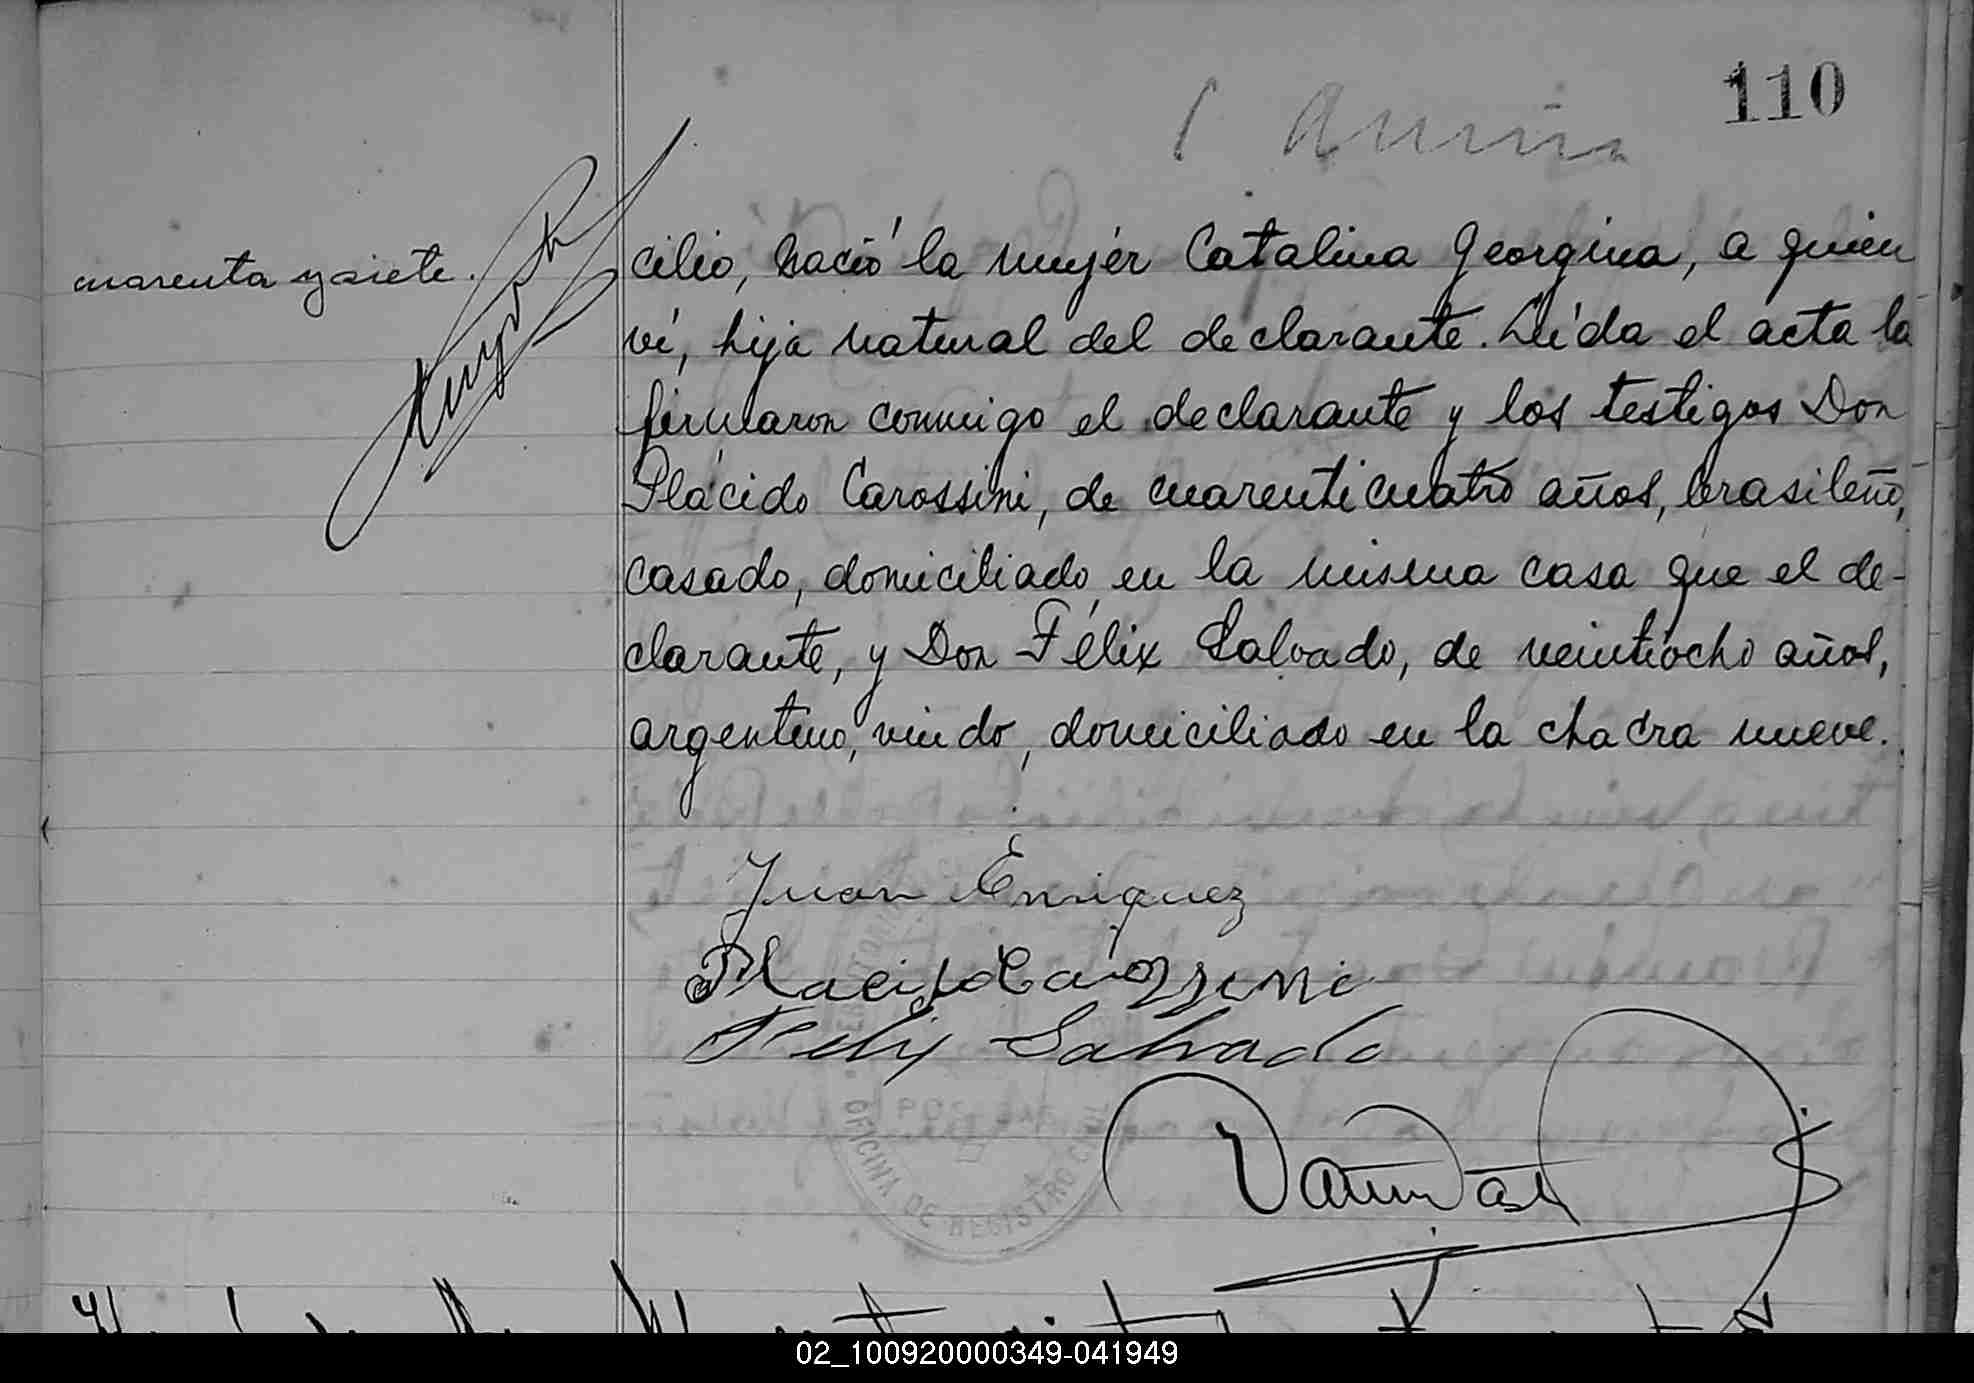 110
cuarenta y siete.
cilio, nació la mujer Catalina Georgina, a quien
ví, hija natural del declarante. Leída el acta la
firmaron conmigo el declarante y los testigos Don
Plácido Carossini, de cuarenticuatro años, brasileño,
casado, domiciliado en la misma casa que el de-
clarante, y Don Félix Salvado, de veintiocho años,
argentino, viudo, domiciliado en la chacra nueve.
Juan Enriquez
Placido Carozzini
Felix Salvado
OFICINA DE REGISTRO CIVIL
02_100920000349-041949